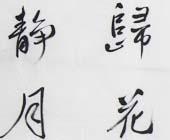 歸花
静月